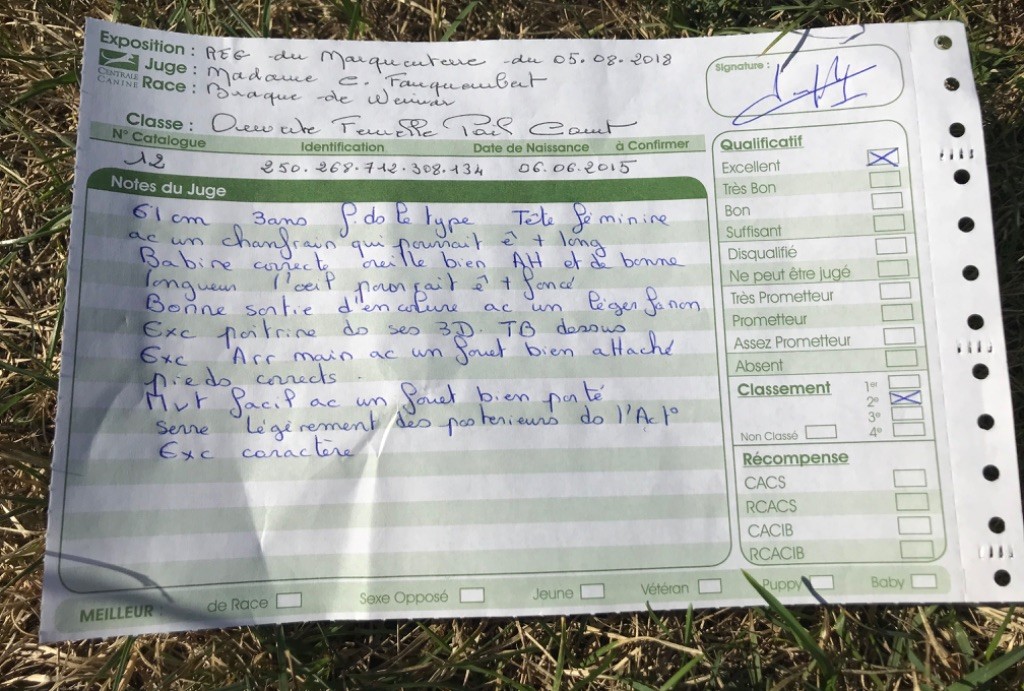 Exposition : REG du Marquenterre du 05.08.2018
CENTRALE CANINE
Juge : Madame C. Fauquembert
Race : Braque de Weimar
Signature :
Classe : Ouverte Femelle Poil Court
N° Catalogue Identification Date de Naissance à Confirmer
12 250.268.712.308.134 06.06.2015
Notes du Juge
61 cm 3ans F. ds le type Tête féminine
ac un chanfrain qui pourrait ê + long
Babine correcte oreille bien AH et de bonne
longueur l'oeil pourrait ê + foncé
Bonne sortie d'encolure ac un léger fanon
Exc poitrine ds ses 3D. TB dessus
Exc Arr main ac un fouet bien attaché
pieds corrects.
Mvt facil ac un fouet bien porté
serre légèrement des posterieurs ds l'Act°
Exc caractère
Qualificatif
Excellent
Très Bon
Bon
Suffisant
Disqualifié
Ne peut être jugé
Très Prometteur
Prometteur
Assez Prometteur
Absent
Classement 1er
2e
3e
Non Classé 4e
Récompense
CACS
RCACS
CACIB
RCACIB
MEILLEUR : de Race Sexe Opposé Jeune Vétéran Puppy Baby